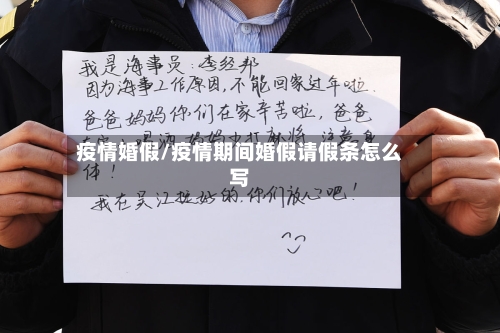 我是海事员:李经邦
因为海事工作原因,不能回家过年啦.
爸爸妈妈你们在家辛苦啦,爸爸
疫情婚假/疫情期间婚假请假条怎么
写
体!
我在吴江挺好的,你们放心吧!